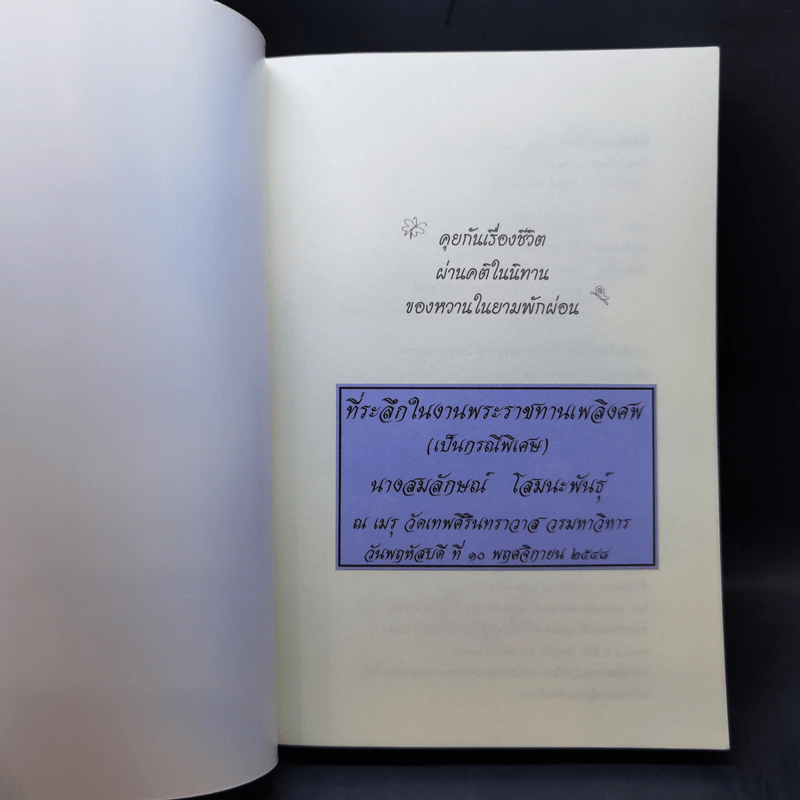 คุยกันเรื่องชีวิต
ผ่านคติในนิทาน
ของหวานในยามพักผ่อน
ที่ระลึกในงานพระราชทานเพลิงศพ
(เป็นกรณีพิเศษ)
นางสมลักษณ์ โสมนะพันธุ์
ณ เมรุ วัดเทพศิรินทราวาส วรมหาวิหาร
วันพฤหัสบดี ที่ ๑๐ พฤศจิกายน ๒๕๔๘